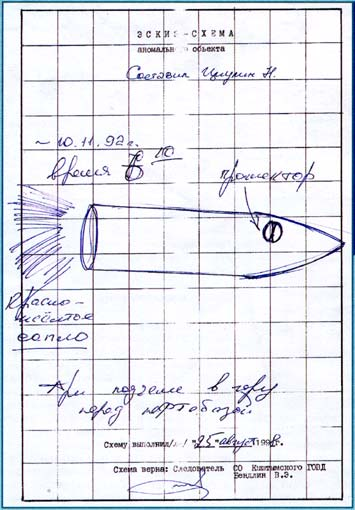 ЭСКИЗ-СХЕМА
аномального объекта
Составил Н.
~ 10.11.92 г.
время 10
прожектор
Красно-
жёлтое
сопло
При подъеме в гору
перед нефтебазой
Схему выполнил/а/ "25" август 1998г.
Схема верна: Следователь СО Кыштымского ГОВД
Бендлин В.З.